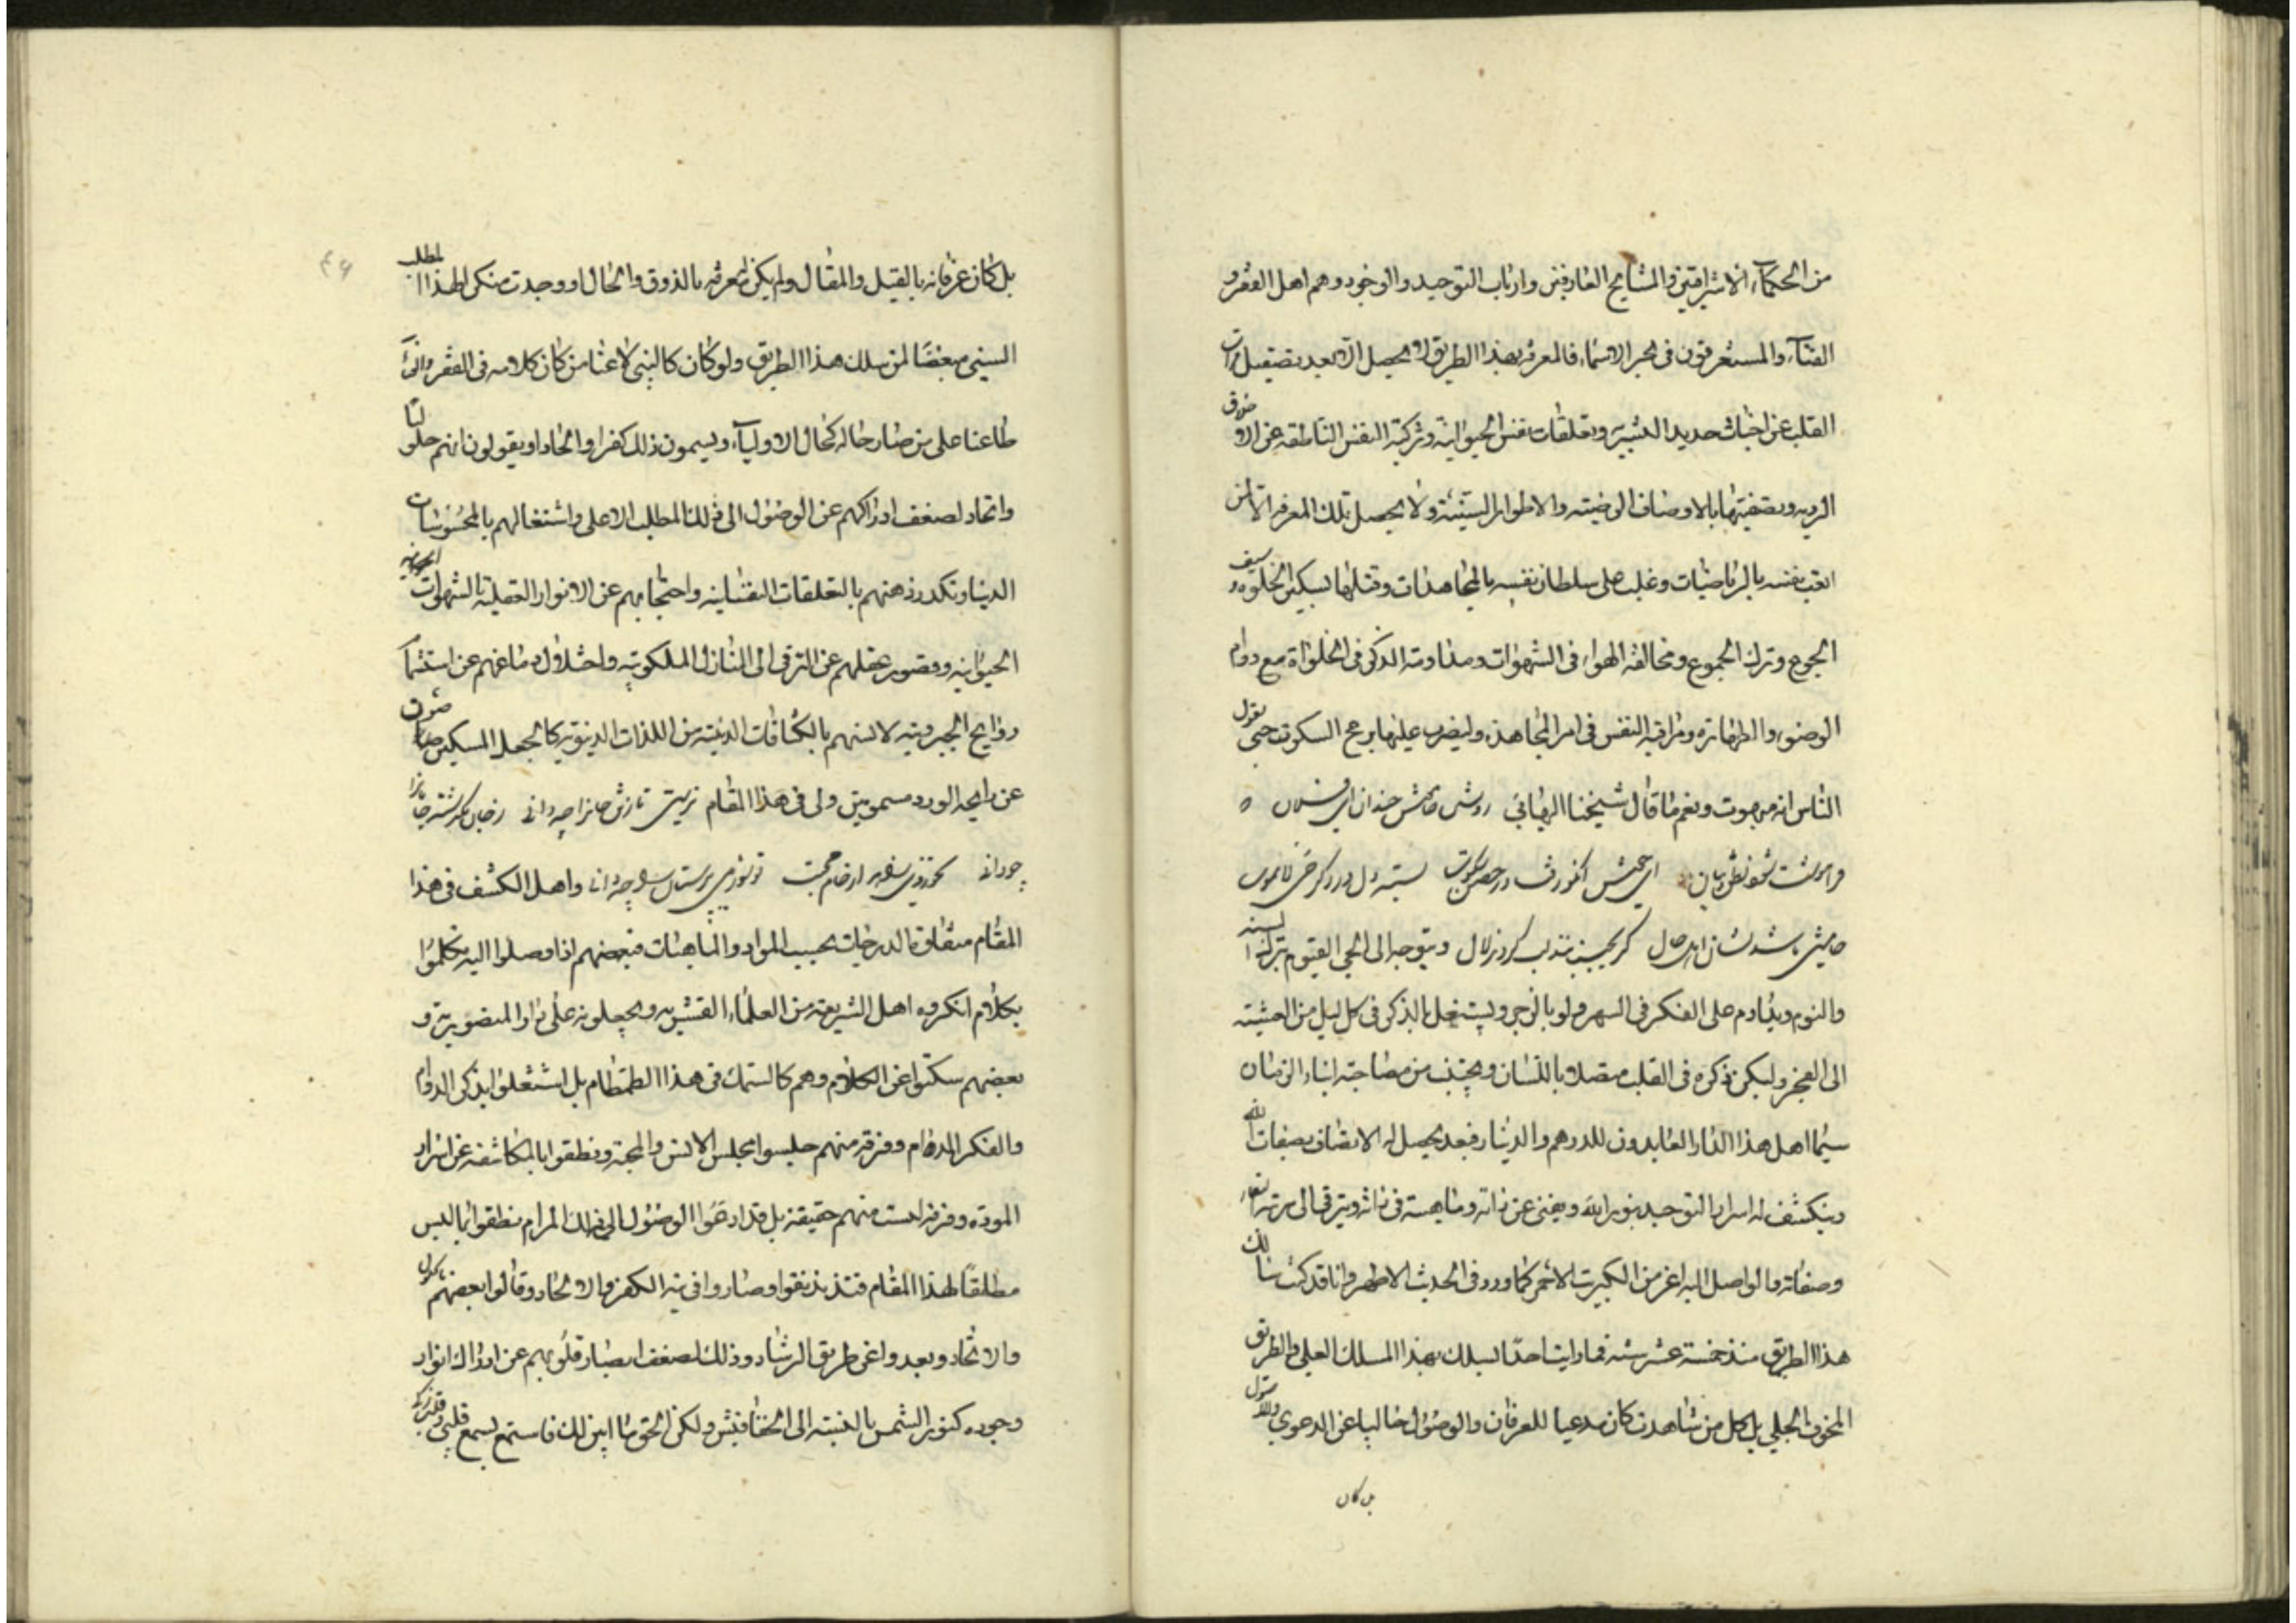 من الحكماء الاشراقيين والمشايخ العارفين وارباب التوحيد والوجود وهم اهل الفقر و
الفناء والمستغرقون في بحر الاسماء فالمعرفة بهذا الطريق لا يحصل الا بعد تصقيل مرات
القلب عن اخباث حديد البشرية وتعلقات نفس الحيوانية وتزكية النفس الناطقة عن الاخلاق
الردية وتصفيتها بالاوصاف الرضية والاطوار السنية ولا يحصل تلك المعرفة الا لمن
اتعب نفسه بالرياضيات وغلب على سلطان نفسه بالمجاهدات وقتلها بسكين الخلوة و سيف
الجوع وترك الجموع ومخالفة الهواء في الشهوات ومداومة الذكر في الخلواة مع دوام
الوضوء والطهارة ومراقبة النفس في امر المجاهدة وليضرب عليها برمح السكوت حتى يقول
الناس انه مبهوت ونعم ما قال شيخنا البهائي رو خامش چندان
فراموشت شود نطق و بيان در حصن سكوت بسته دل در ذكر حي لا يموت
خامشي باشد نشان اهل حال گر بجنبند لب گردند لال ويتوجه الى الحي القيوم بترك السنة
والنوم ويداوم على الفكر في السهر ولو بالزجر ويشتغل بالذكر في كل ليل من العشية
الى الفجر وليكن ذكره في القلب متصلا باللسان ويجتنب من مصاحبة ابناء الزمان
سيما اهل هذا الدار العابدون للدرهم والدينار فبعد يحصل له الاتصاف بصفات الله
وينكشف له اسرار التوحيد بنور الله ويفنى عن ذاته وماهيته في ذاته ويترقى الى مرتبة
وصفاته والواصل اليه اعز من الكبريت الاحمر كما ورد في الحديث الاطهر وانا قد كنت سالك
هذا الطريق منذ خمسة عشر سنه فما رايت احدا يسلك بهذا المسلك العلي والطريق
المخوف الجلي بل كل من شاهدت كان مدعيا للعرفان والوصول خاليا عن الدعوي
بل كان
٤٦
بل كان عرفانه بالقيل والمقال ولم يكن لمعرفته بالذوق والحال او وجدت منكرا لهذا المطلب
السني مبغضا لمن سلك هذا الطريق ولو كان كالنبي لاعنا من كان كلامه في الفقر والفناء
طاعنا على من صار حاله كحال الاولياء ويسمون ذلك كفرا والحادا ويقولون انهم حلوليا
واتحاد لضعف ادراكهم عن الوصول الى ذلك المطلب الاعلى واشتغالهم بالمحسوسات
الدنيا وتكدر ذهنهم بالتعلقات النفسانية واحتجابهم عن الانوار العقلية بالشهوات
الحيوانية وقصور عقلهم عن الترقي الى المنازل الملكوتية واختلال دماغهم عن استشمام
روايح الجبروتية لانسهم بالكثافات الدنية من اللذات الدنيوية كالجعل المسكين
عن رايحة الورد مسمومين ولى في هذا المقام
چه داني واهل الكشف في هذا
المقام متفاوتة الدرجات بحسب المواد والماهيات فبعضهم اذا وصلوا اليه تكلموا
بكلام انكروه اهل الشريعة من العلماء القشرية ويجعلونه على دار المنصورية و
بعضهم سكتوا عن الكلام وهم كالسمك في هذا الطمطام بل اشتغلوا بذكر الدوام
والفكر المدام وفرقة منهم جلسوا مجلس الانس والمحبة ونطقوا بالمكاشفة عن اسرار
المودة وفرقة ليست منهم حقيقة بل قد ادعوا الوصول الى ذلك المرام نطقوا بما ليس
مطلقا لهذا المقام فتذبذبوا وصاروا في تيه الكفر والالحاد وقالوا بعضهم بالحلول
والاتحاد وبعدوا عن طريق الرشاد وذلك لضعف ابصار قلوبهم عن ادراك انوار
وجوده كنور الشمس بالنسبة الى الخفافيش ولكن الحق ما ابين لك فاستمع بسمع قلبي